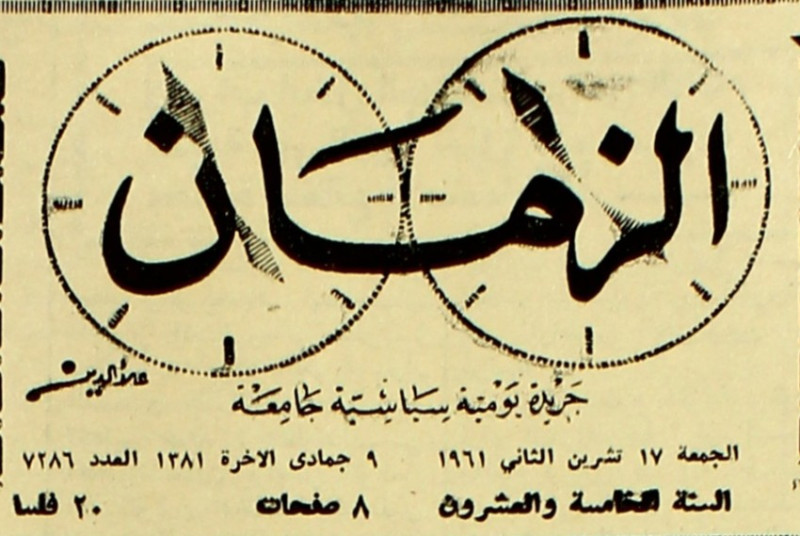 الزمان
علاء الدين
جَريدة يَوميَّة سِيَاسِيَّة جَامِعَة
الجمعة ١٧ تشرين الثاني ١٩٦١ ٩ جمادى الاخرة ١٣٨١ العدد ٧٢٨٦
السنة الخامسة والعشرون ٨ صفحات ٢٠ فلسا